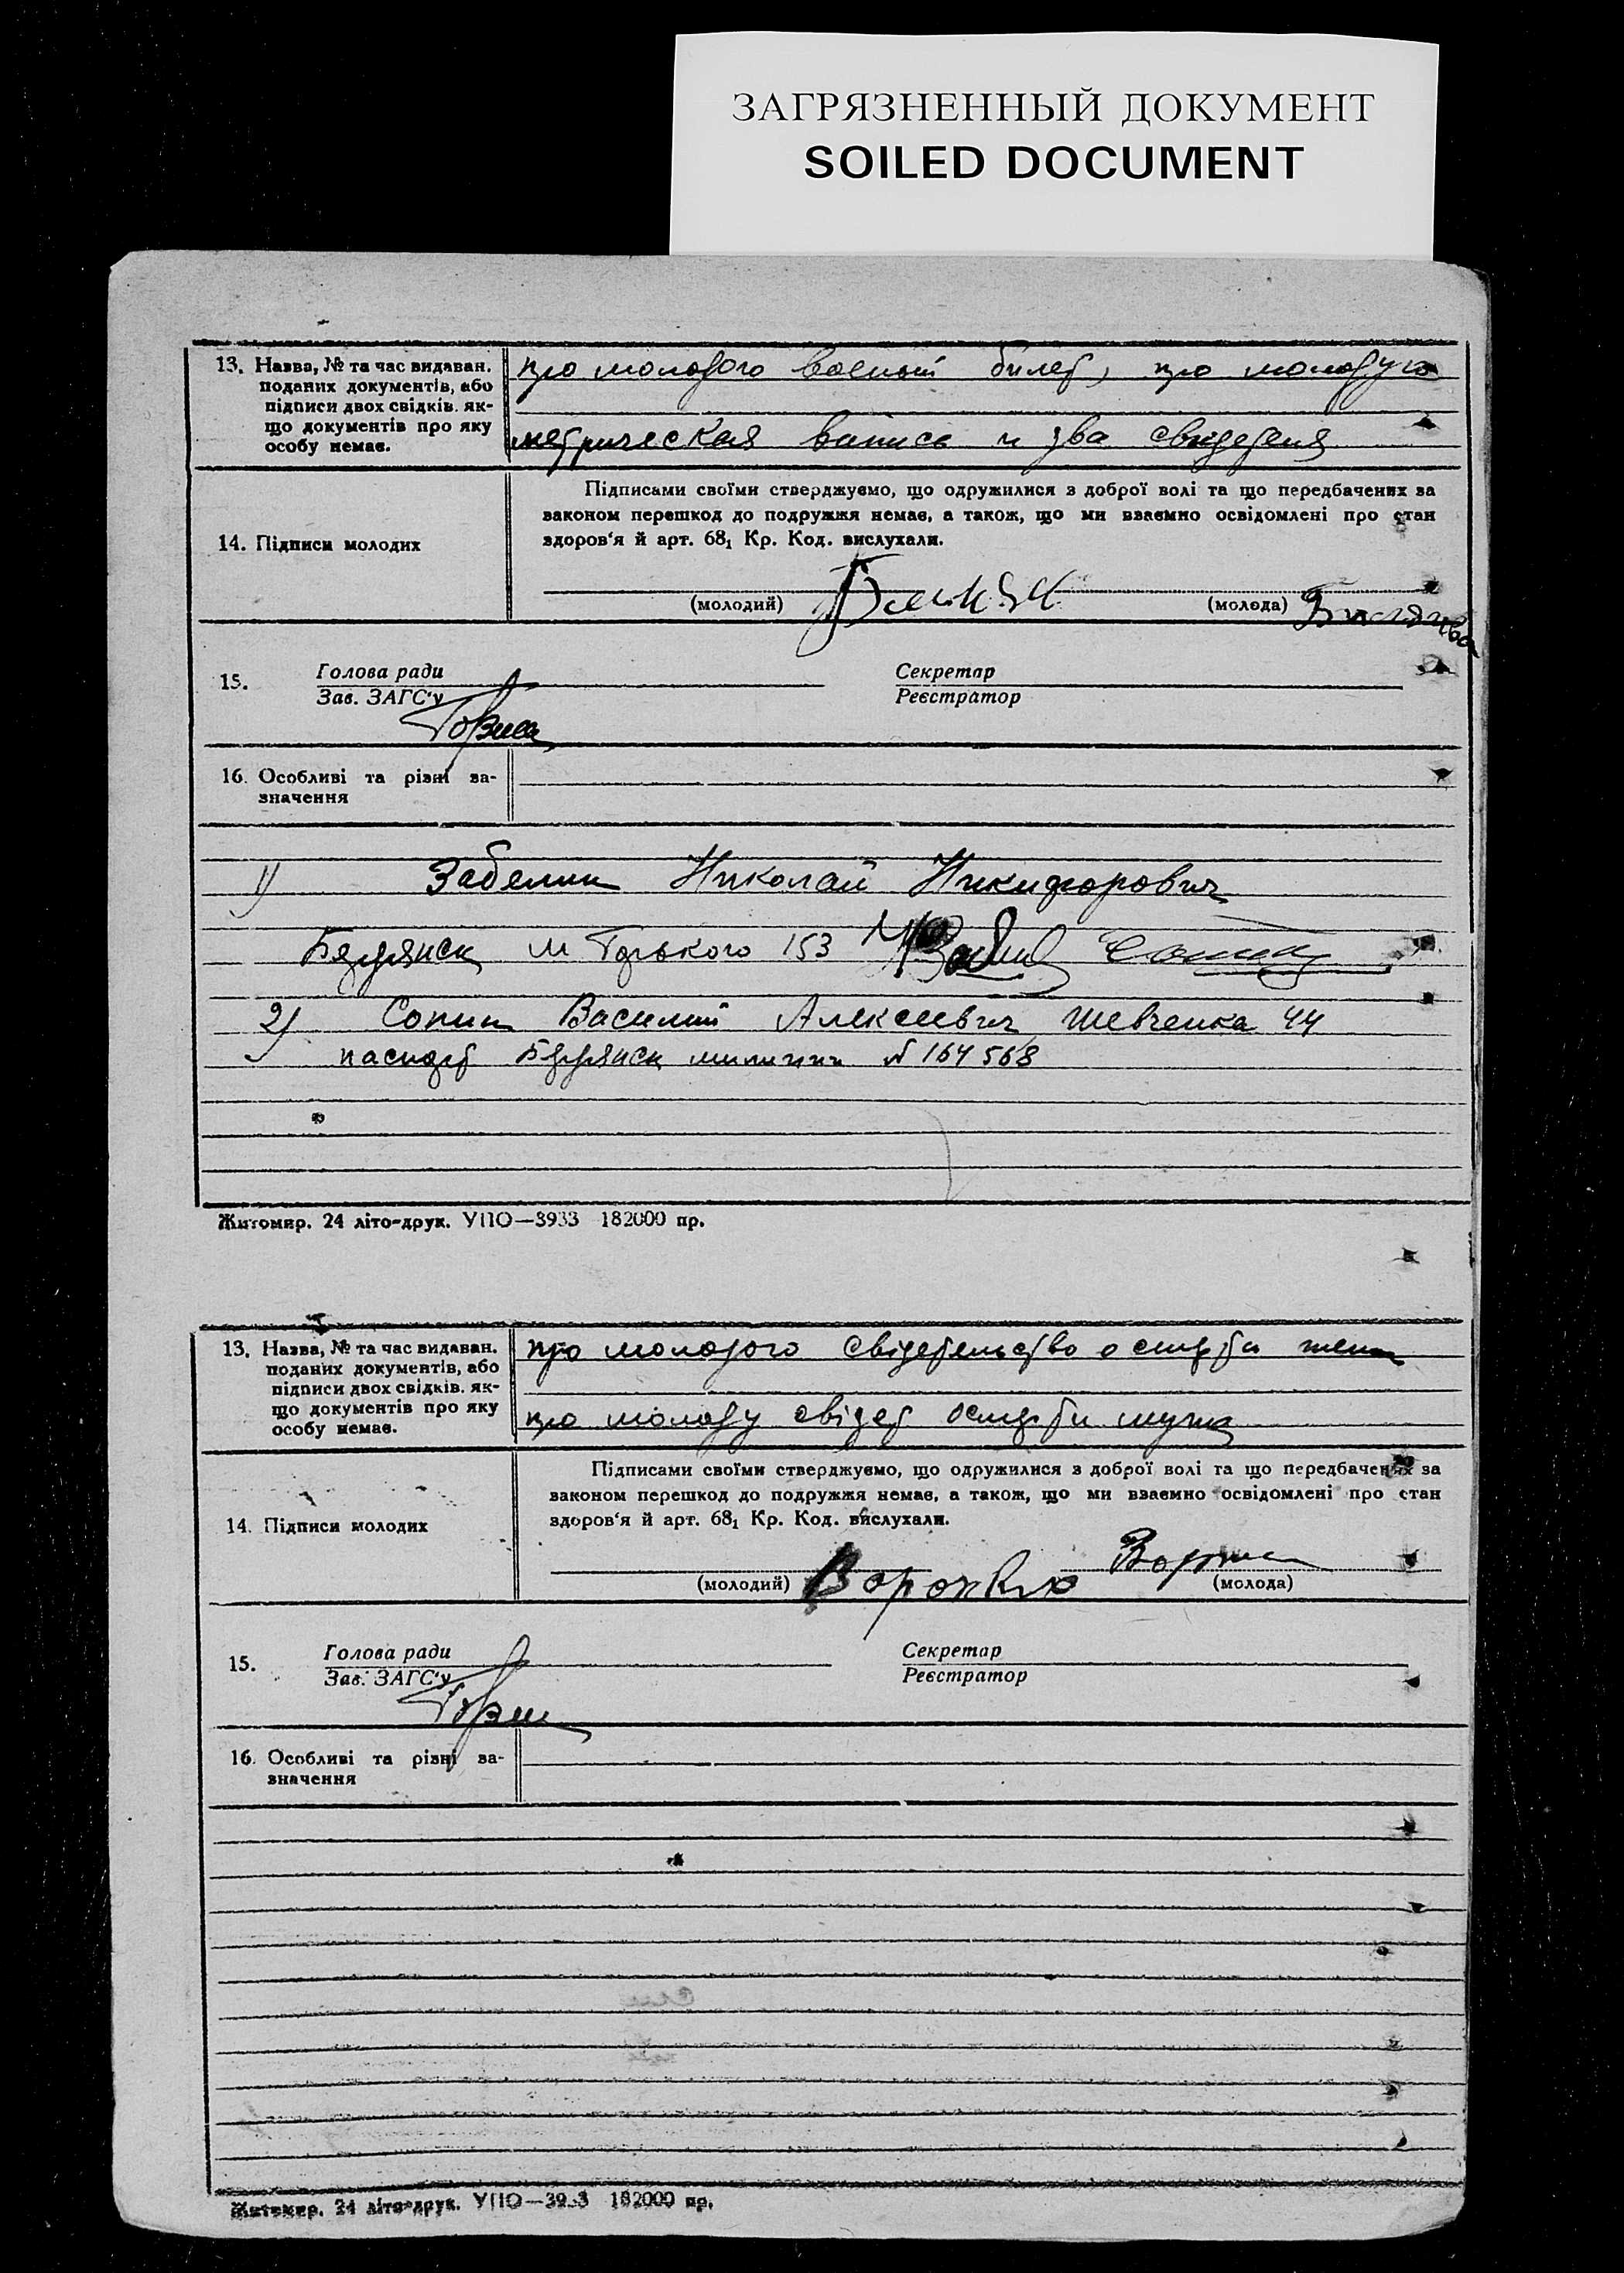 ЗАГРЯЗНЕННЫЙ ДОКУМЕНТ
SOILED DOCUMENT
13. Назва, № та час видаван. поданих документів, або підписи двох свідків. як-що документів про яку особу немає.
про молодого военый билет, про молодую
метрическая вапись и два свидетеля
14. Підписи молодих
Підписами своїми стверджуємо, що одружилися з доброї волі та що передбачених за
законом перешкод до подружжя немає, а також, що ми взаємно освідомлені про стан
здоров'я й арт. 68₁ Кр. Код. вислухали.
(молодий)
(молода)
15.
Голова ради
Зав. ЗАГС'у
Секретар
Реєстратор
16. Особливі та різні за-
значення
1) Забелин Николай Никифорович
Бердянск М Горького 153
2) Сопин Василий Алексеевич Шевченка 44
паспорт Бердянск милиции № 164568
Житомир. 24 літо-друк. УПО—3933 182000 пр.
13. Назва, № та час видаван. поданих документів, або підписи двох свідків. як-що документів про яку особу немає.
про молодого свідетельство о смерти жены
про молоду свідет о смерти мужа
14. Підписи молодих
Підписами своїми стверджуємо, що одружилися з доброї волі та що передбачених за
законом перешкод до подружжя немає, а також, що ми взаємно освідомлені про стан
здоров'я й арт. 68₁ Кр. Код. вислухали.
(молодий)
(молода)
15.
Голова ради
Зав. ЗАГС'у
Секретар
Реєстратор
16. Особливі та різні за-
значення
Житомир. 24 літо-друк. УПО—3933 182000 пр.